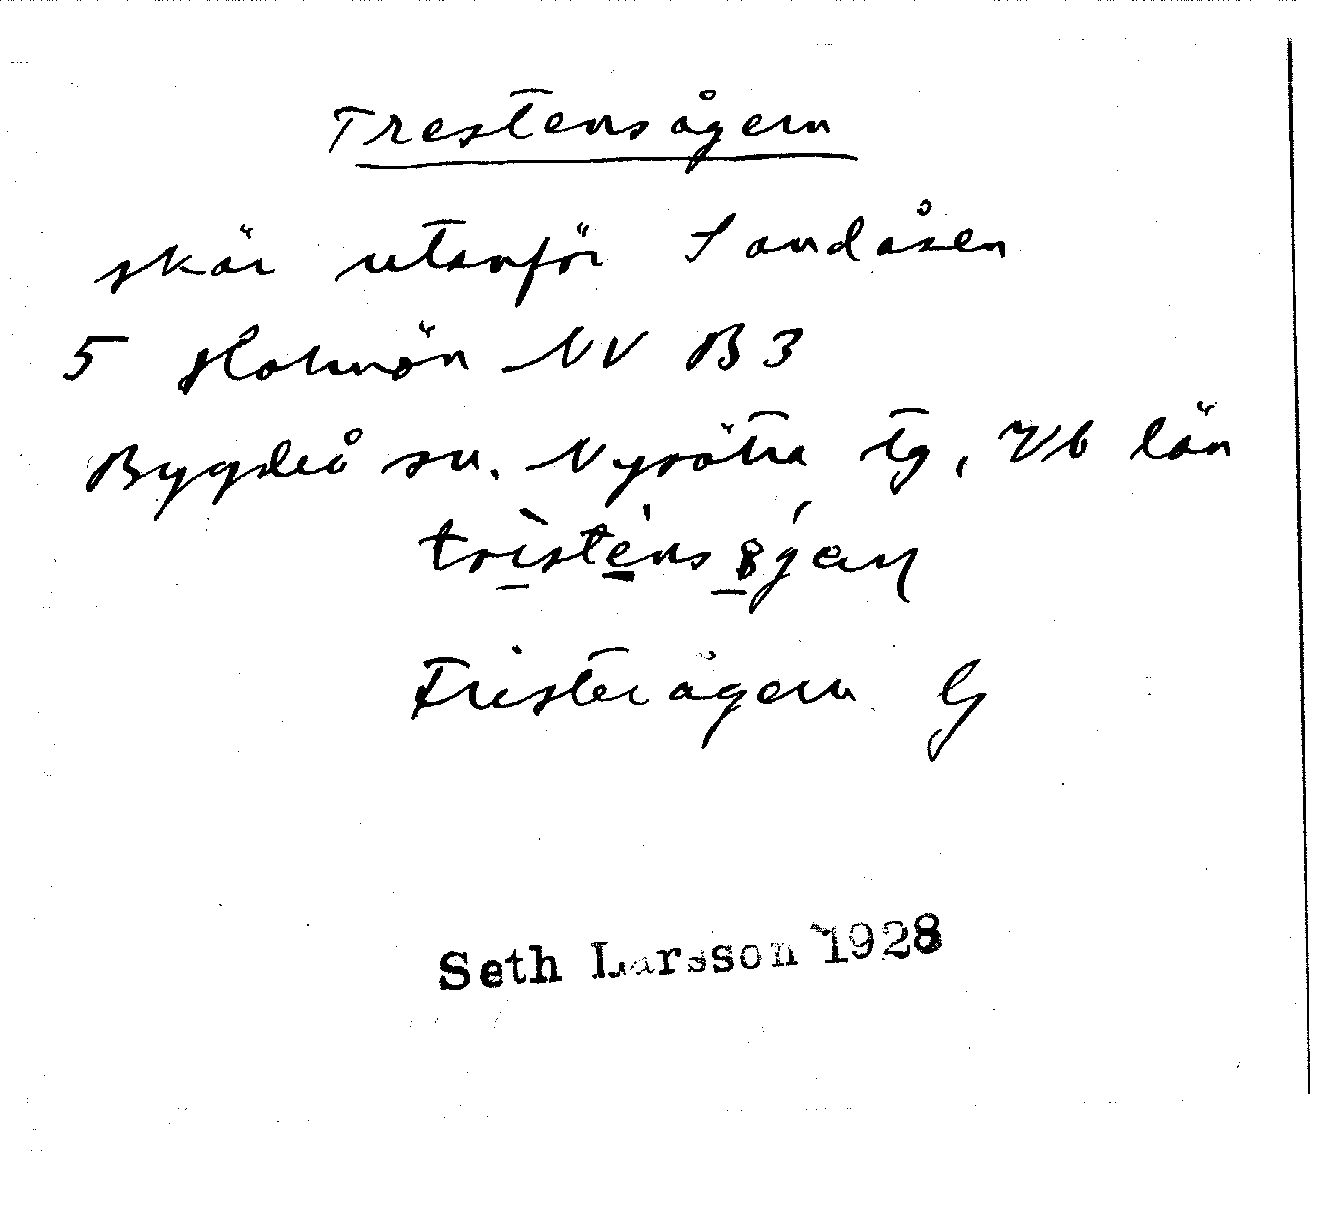 Trestensågern
skär utanför Sandåsen
5 Holmön NV B3
Bygdeå sn. Nysätra tg, Vb län
Tristerågern G
Seth Larsson 1928